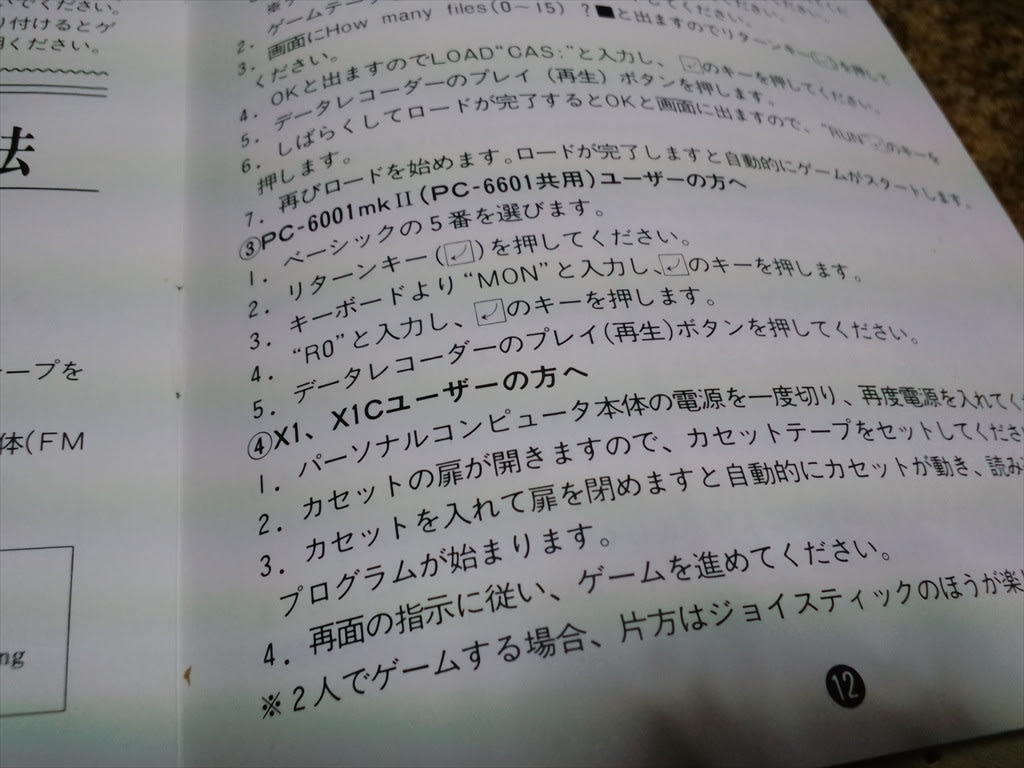 ください。
り付けるとゲ
ください。
法
ープを
体(FM
ng
2. ゲームテープ
3. 画面にHow many files(0〜15) ?■と出ますのでリターンキー を押して
ください。
4. OKと出ますのでLOAD"CAS:"と入力し、 のキーを押してください。
5. データレコーダーのプレイ(再生)ボタンを押します。
6. しばらくしてロードが完了するとOKと画面に出ますので、"RUN のキーを
押します。
7. 再びロードを始めます。ロードが完了しますと自動的にゲームがスタートします。
③PC-6001mkⅡ(PC-6601共用)ユーザーの方へ
1. ベーシックの5番を選びます。
2. リターンキー(↲)を押してください。
3. キーボードより"MON"と入力し、↲のキーを押します。
4. "R0"と入力し、↲のキーを押します。
5. データレコーダーのプレイ(再生)ボタンを押してください。
④X1、X1Cユーザーの方へ
1. パーソナルコンピュータ本体の電源を一度切り、再度電源を入れてく
2. カセットの扉が開きますので、カセットテープをセットしてくださ
3. カセットを入れて扉を閉めますと自動的にカセットが動き、読み
プログラムが始まります。
4. 再面の指示に従い、ゲームを進めてください。
※2人でゲームする場合、片方はジョイスティックのほうが楽
12